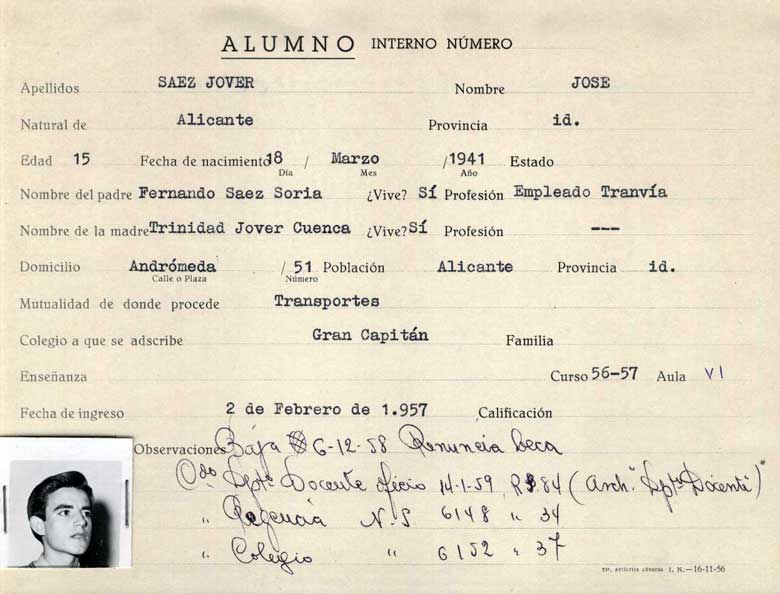 ALUMNO INTERNO NÚMERO
Apellidos SAEZ JOVER Nombre JOSE
Natural de Alicante Provincia id.
Edad 15 Fecha de nacimiento 18 / Marzo /1941 Estado
Día Mes Año
Nombre del padre Fernando Saez Soria ¿Vive? Sí Profesión Empleado Tranvía
Nombre de la madre Trinidad Jover Cuenca ¿Vive? Sí Profesión ---
Domicilio Andrómeda / 51 Población Alicante Provincia id.
Calle o Plaza Número
Mutualidad de donde procede Transportes
Colegio a que se adscribe Gran Capitán Familia
Enseñanza Curso 56-57 Aula VI
Fecha de ingreso 2 de Febrero de 1.957 Calificación
Observaciones Baja 6-12-58 Renuncia beca
Dptº Docente oficio 14-1-59, 84 (Archº Dptº Docente)
" Regencia N.S 6148 " 34
" Colegio " 6152 " 37
TIP. ARTÍSTICA CÓRDOBA I. N.—16-11-56